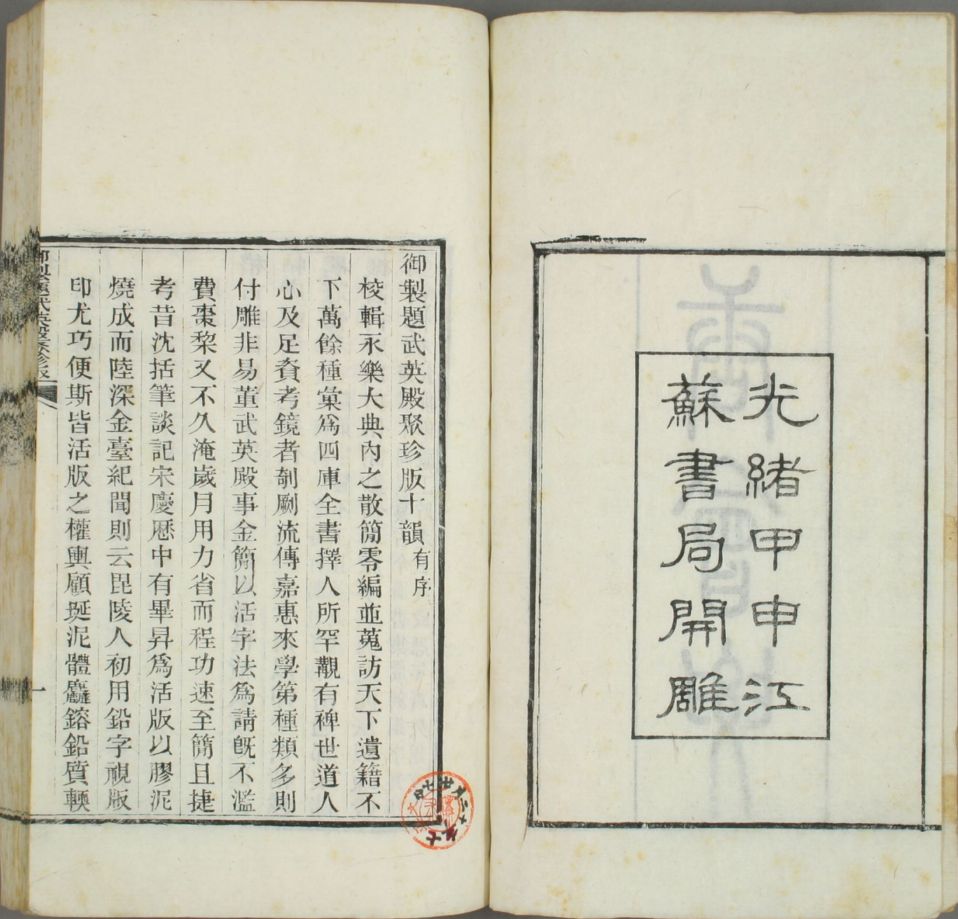 光緒甲申江
蘇書局開雕
御製題武英殿聚珍版十韻有序
校輯永樂大典內之散簡零編並蒐訪天下遺籍不
下萬餘種彙為四庫全書擇人所罕觀有裨世道人
心及足資考鏡者剞劂流傳嘉惠來學第種類多則
付雕非易董武英殿事金簡以活字法為請旣不濫
費棗棃又不久淹歲月用力省而程功速至簡且捷
考昔沈括筆談記宋慶歷中有畢昇為活版以膠泥
燒成而陸深金臺紀聞則云毘陵人初用鉛字視版
印尤巧便斯皆活版之權輿顧埏泥體麤鎔鉛質輭